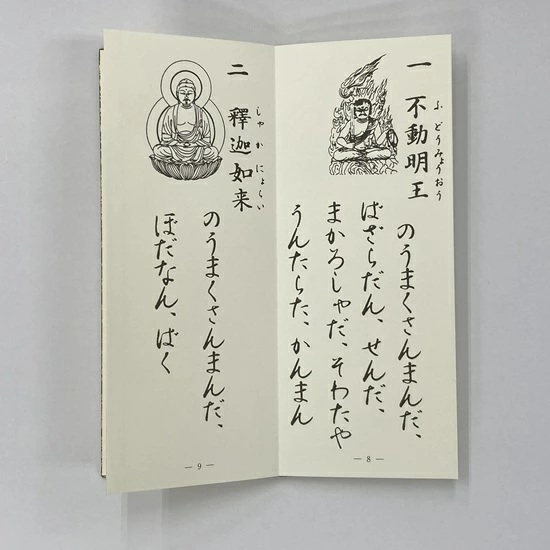 一 不動明王
ふどうみょうおう
のうまくさんまんだ、
ばざらだん、せんだ、
まかろしゃだ、そわたや
うんたらた、かんまん
— 8 —
二 釋迦如来
しゃかにょらい
のうまくさんまんだ、
ぼだなん、ばく
— 9 —